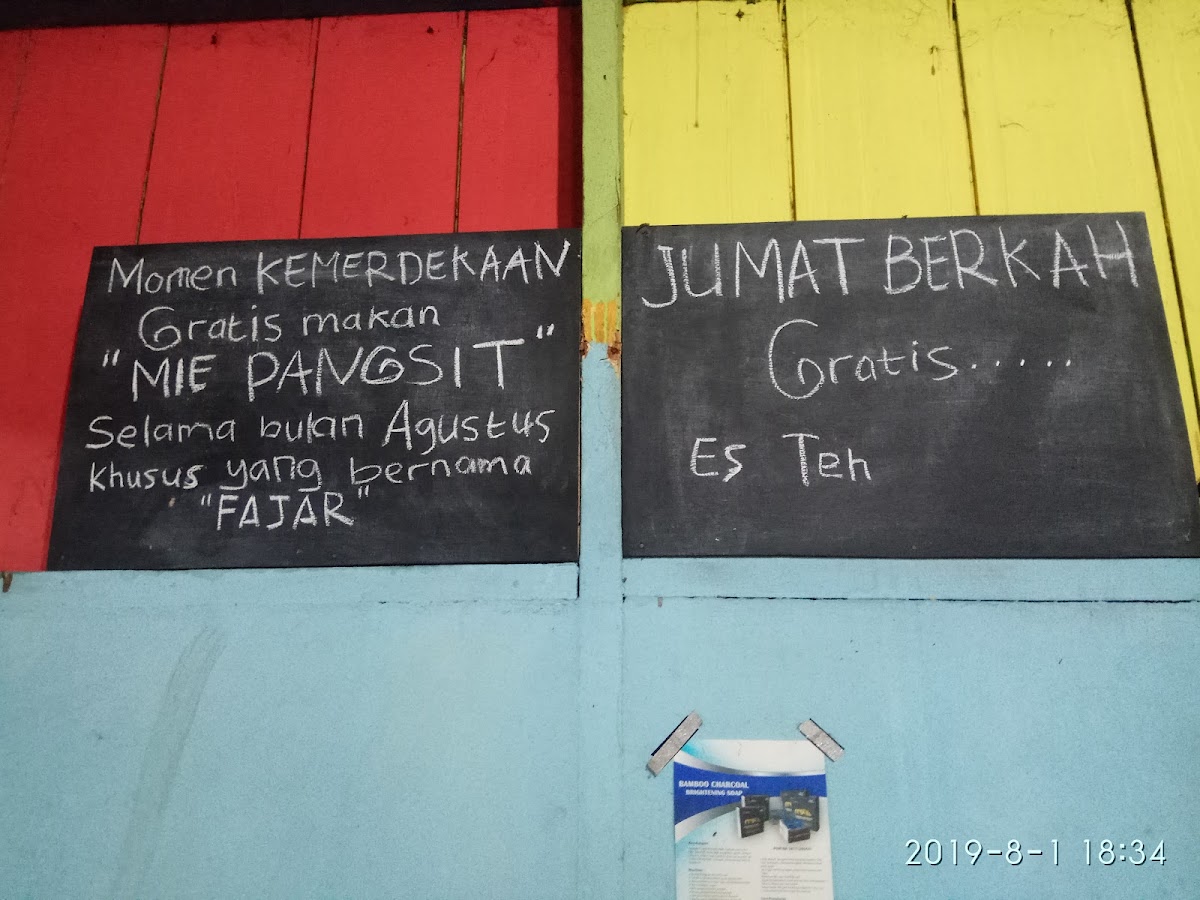 Momen KEMERDEKAAN
Gratis makan
"MIE PANGSIT"
Selama bulan Agustus
khusus yang bernama
"FAJAR"
JUMAT BERKAH
Gratis.....
Es Teh
BAMBOO CHARCOAL
BRIGHTENING SOAP
2019-8-1 18:34